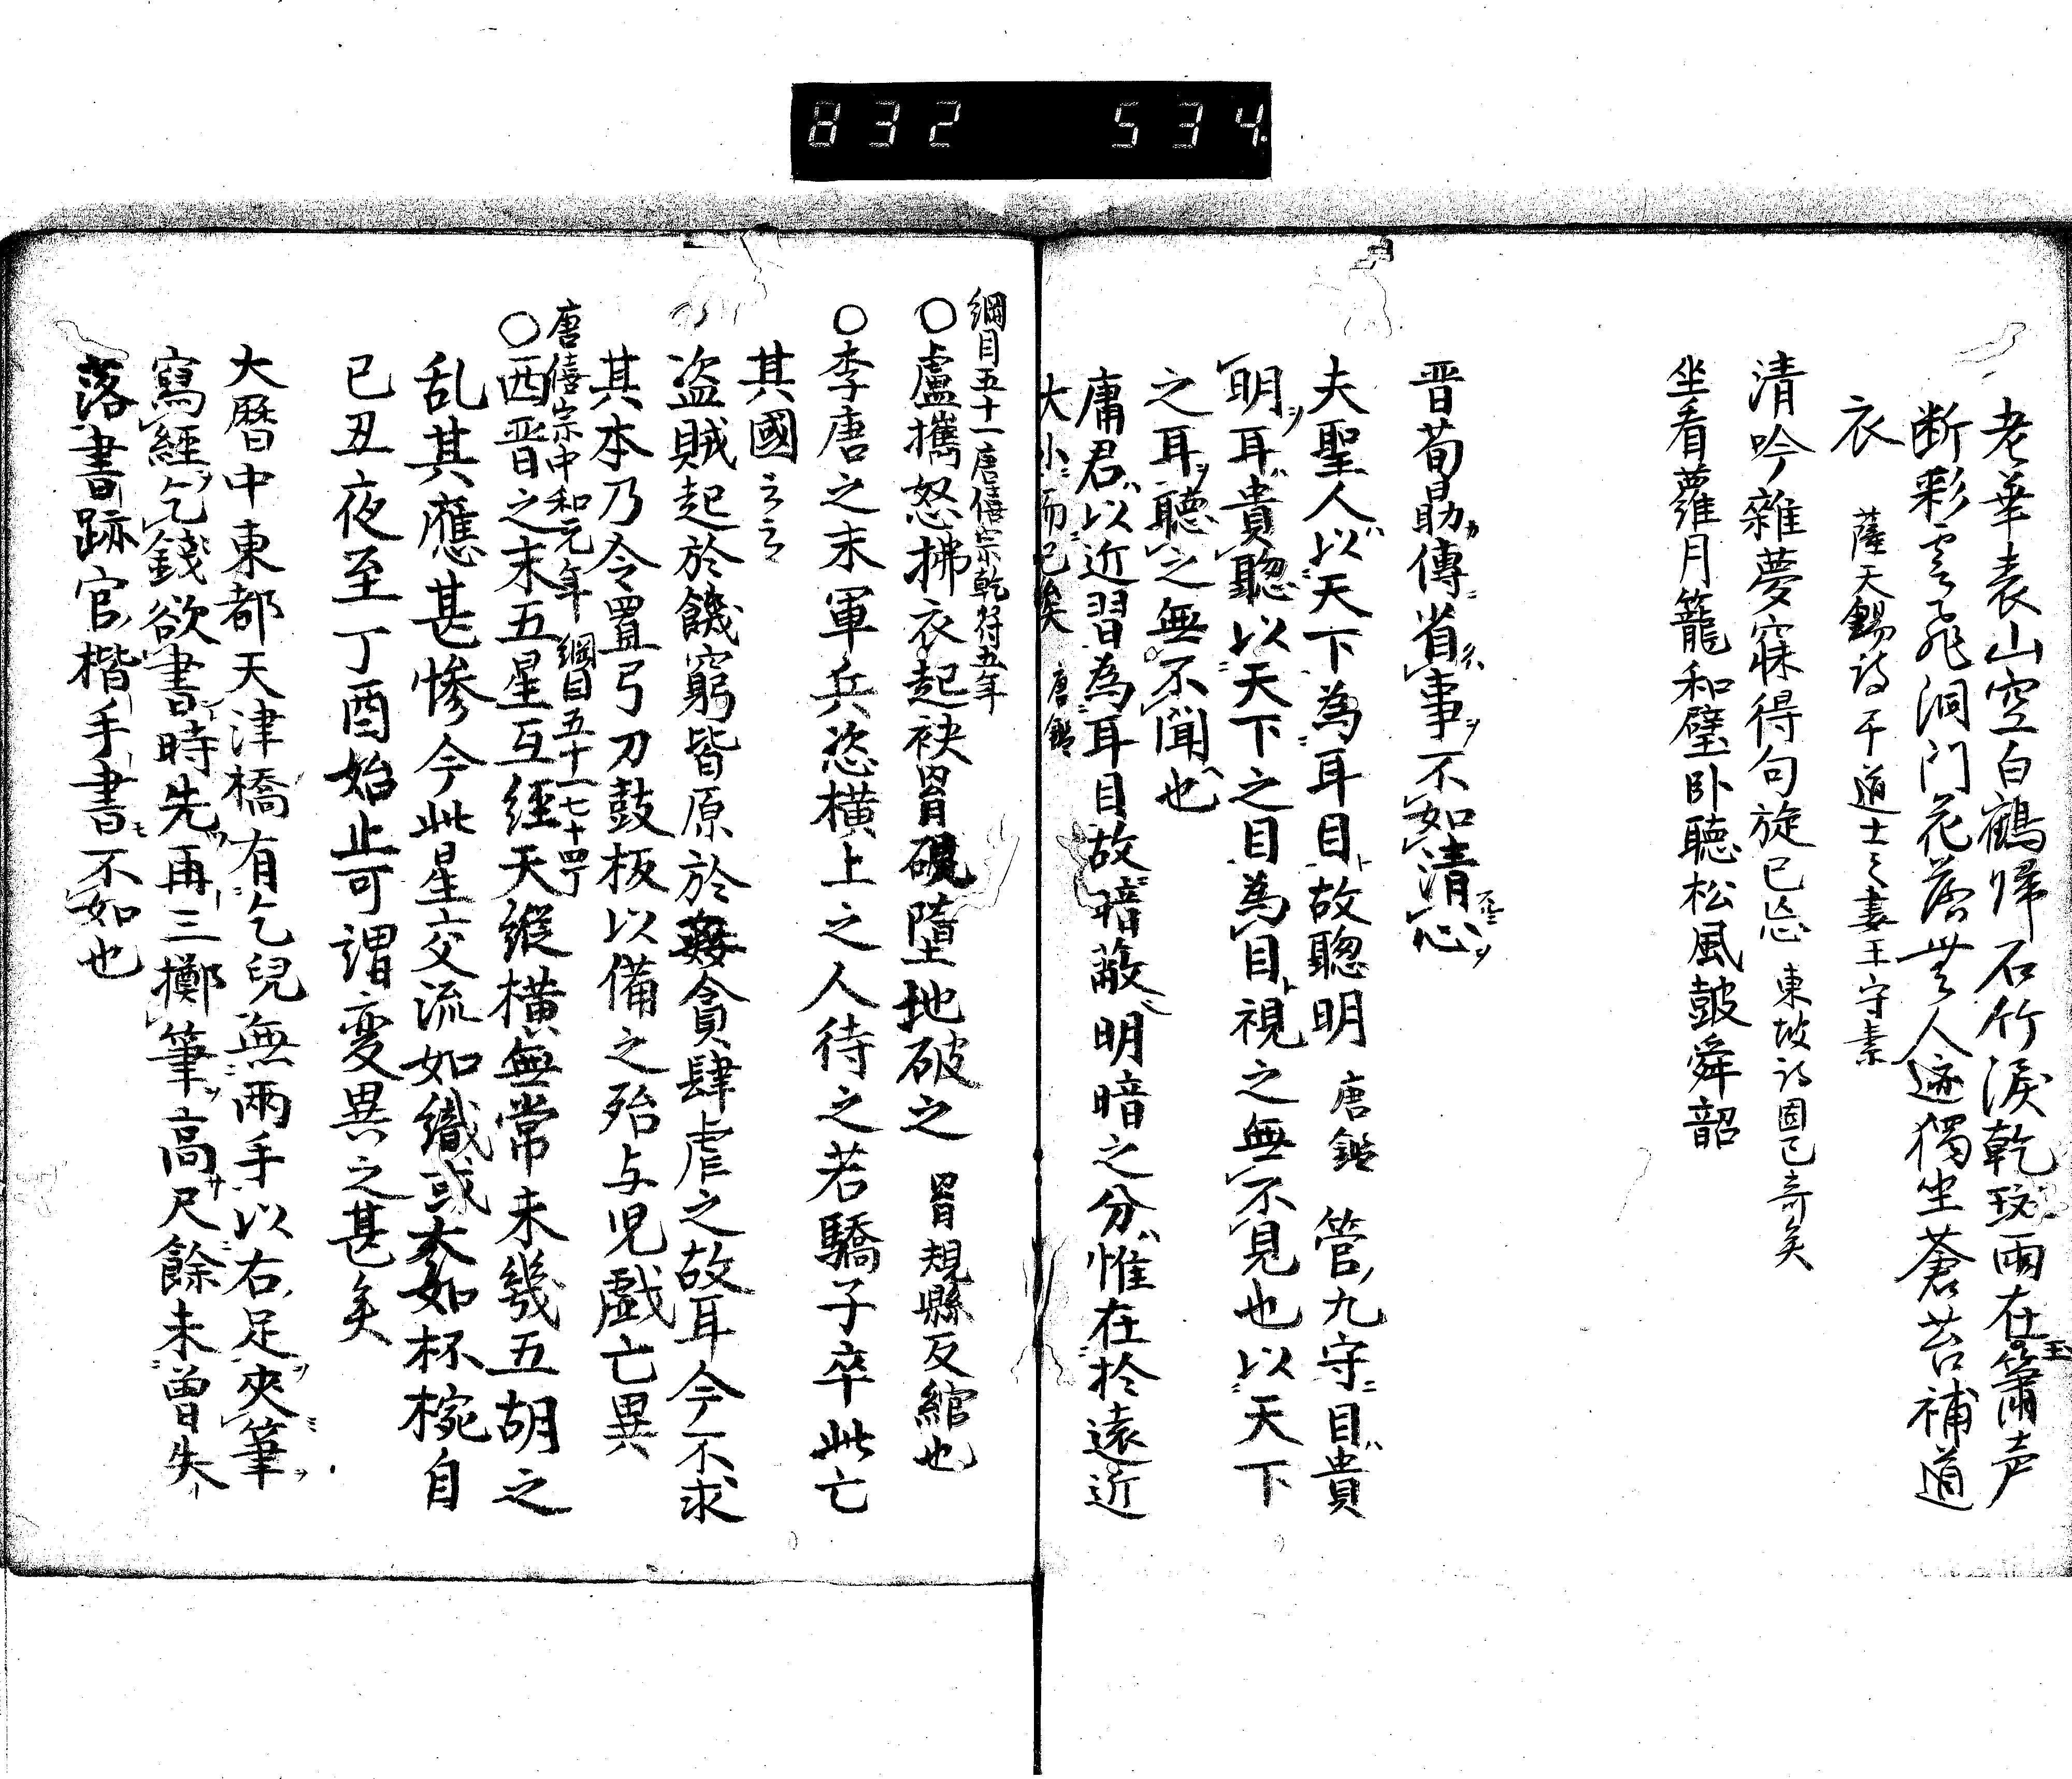 832 534
老華表山空白鶴帰石竹淚乾斑雨在玉簫声
断彩雲飛洞门花落無人迹獨坐蒼苔補道
衣 薩天錫詩 于道士之妻王守素
清吟雜夢寐得句旋已忘 東坡詩固已奇矣
坐看蘿月籠和璧卧聽松風皷舜韶
晋荀勗傳省事不如清心
夫聖人以天下為耳目故聡明 唐鑑 管九守目貴
明耳貴聡以天下之目為目視之無不見也以天下
之耳聽之無不聞也
庸君以近習為耳目故暗蔽明暗之分惟在於遠近
大小而已矣 唐鑑
綱目五十一唐僖宗乾符五年
○盧攜怒拂衣起袂罥硯墮地破之 罥規縣反綰也
○李唐之末軍兵恣横上之人待之若驕子卒此亡
其國云云
盗賊起於饑窮皆原於姦貪肆虐之故耳今不求
其本乃令置弓刀鼓板以備之殆与児戯亡異
唐僖宗中和元年 綱目五十一七十四丁
○西晋之末五星互經天縦横無常未幾五胡之
乱其應甚惨今此星交流如織或大如杯椀自
已丑夜至丁酉始止可謂変異之甚矣
大暦中東都天津橋有乞兒無兩手以右足夾筆
寫經乞錢欲書時先再三擲筆高尺餘未曾失
落書跡官楷手書不如也